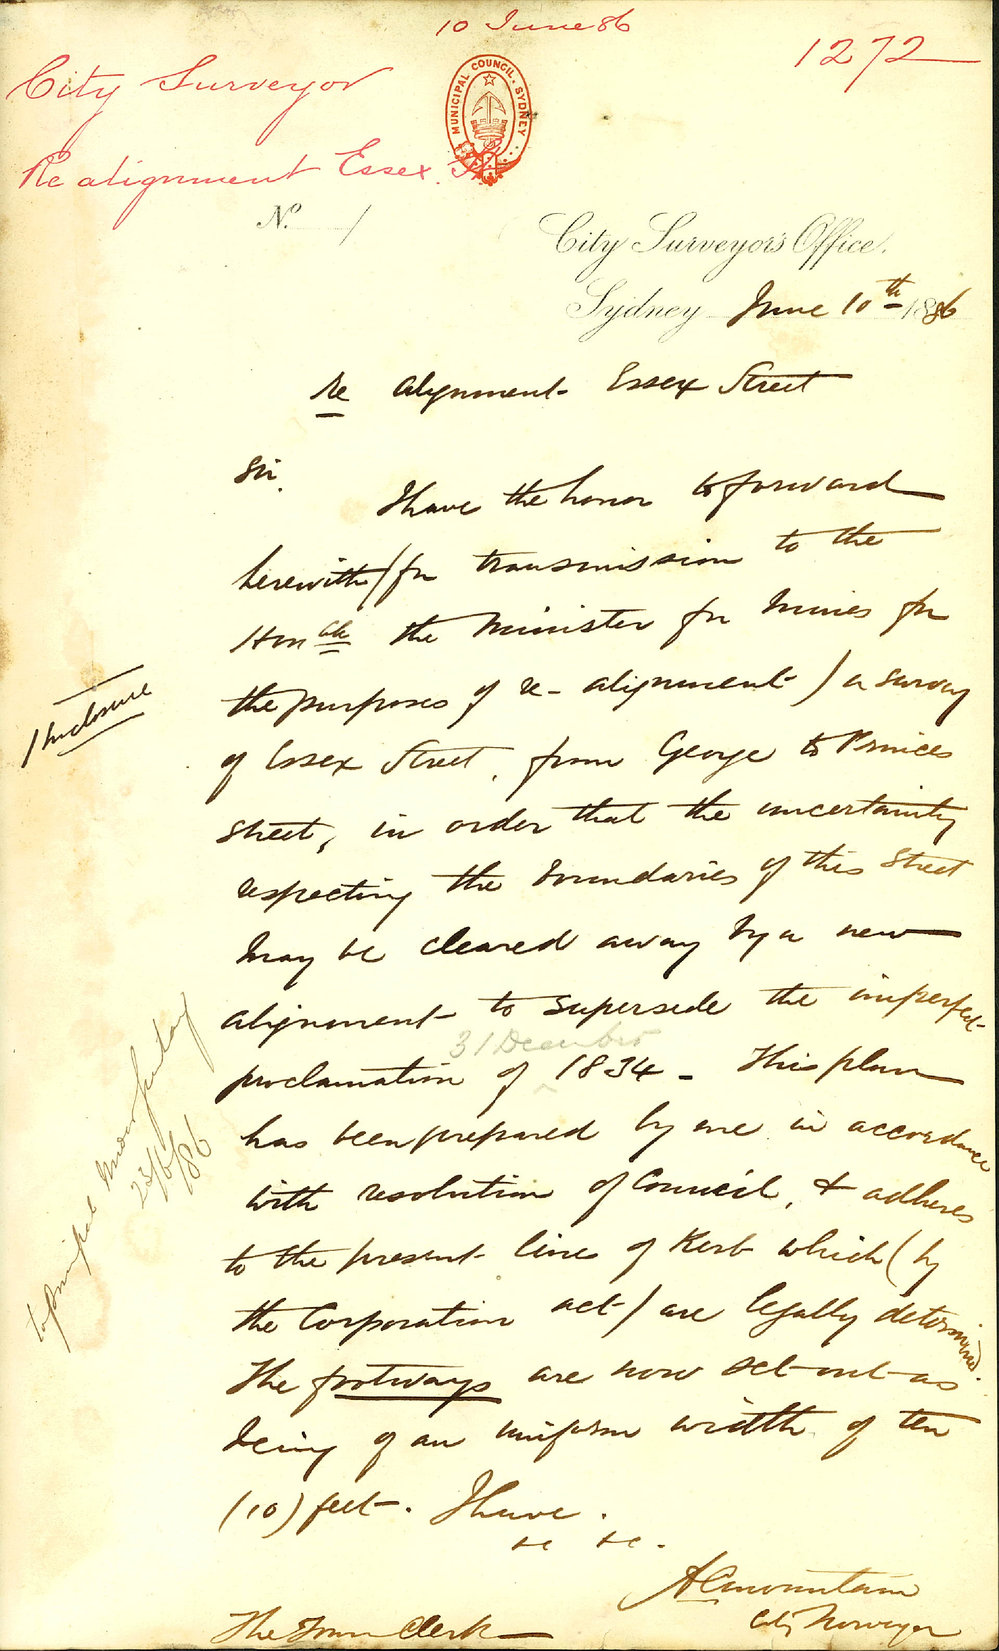 10 June 86
1272
City Surveyor
Re alignment Essex St
MUNICIPAL COUNCIL. SYDNEY
No. 1
City Surveyor's Office.
Sydney June 10th 1886
re alignment Essex Street
Sir,
I have the honor to forward
herewith (for transmission to the
Honble the Minister for Mines for
the purposes of re-alignment) a survey
1 Enclosure
of Essex Street, from George to Princes
street, in order that the uncertainty
respecting the boundaries of this Street
may be cleared away by a new
alignment to supersede the imperfect
31 December
proclamation of 1834 - This plan
has been prepared by me in accordance
with resolution of Council, & adheres
to the present line of Kerb which (by
the Corporation act) are legally determined.
The footways are now set out as
being of an uniform width of ten
(10) feet. I have.
&c &c.
City Surveyor
The Town Clerk
Principal Under Secretary
23/6/86